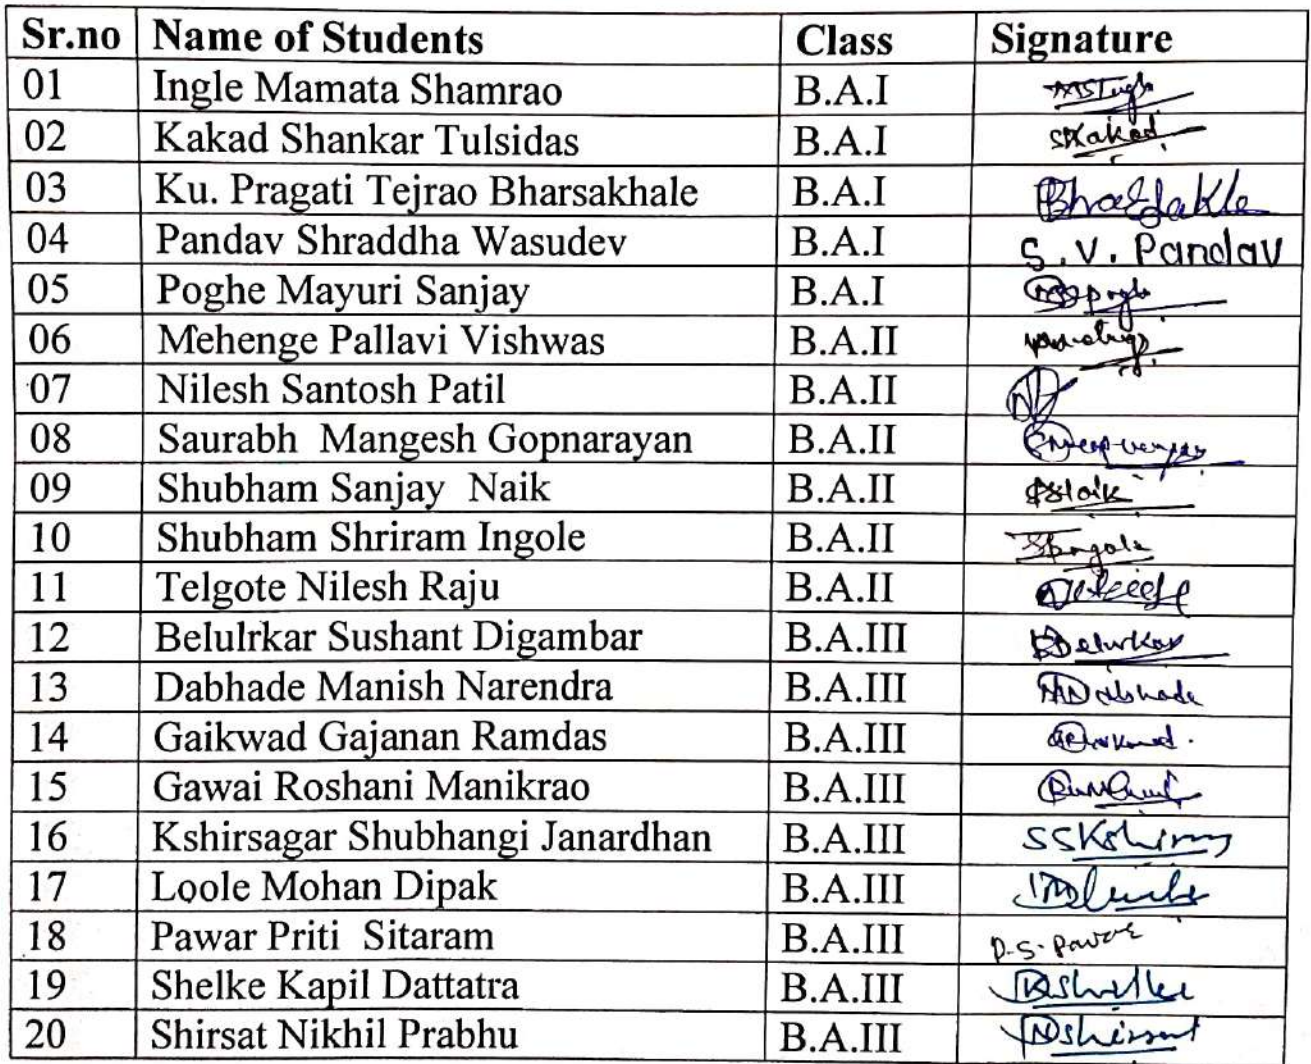 Sr.no Name of Students Class Signature
01 Ingle Mamata Shamrao B.A.I
02 Kakad Shankar Tulsidas B.A.I SKakad
03 Ku. Pragati Tejrao Bharsakhale B.A.I
04 Pandav Shraddha Wasudev B.A.I S.V. Pandav
05 Poghe Mayuri Sanjay B.A.I
06 Mehenge Pallavi Vishwas B.A.II
07 Nilesh Santosh Patil B.A.II
08 Saurabh Mangesh Gopnarayan B.A.II
09 Shubham Sanjay Naik B.A.II
10 Shubham Shriram Ingole B.A.II
11 Telgote Nilesh Raju B.A.II
12 Belulrkar Sushant Digambar B.A.III
13 Dabhade Manish Narendra B.A.III
14 Gaikwad Gajanan Ramdas B.A.III
15 Gawai Roshani Manikrao B.A.III
16 Kshirsagar Shubhangi Janardhan B.A.III
17 Loole Mohan Dipak B.A.III
18 Pawar Priti Sitaram B.A.III P.S. Pawar
19 Shelke Kapil Dattatra B.A.III
20 Shirsat Nikhil Prabhu B.A.III